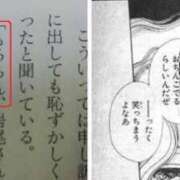 こういっては申し
に出しても恥ずかしく
ったと聞いている。
らしいんだぜ
ったく
笑っちまう
よなあ